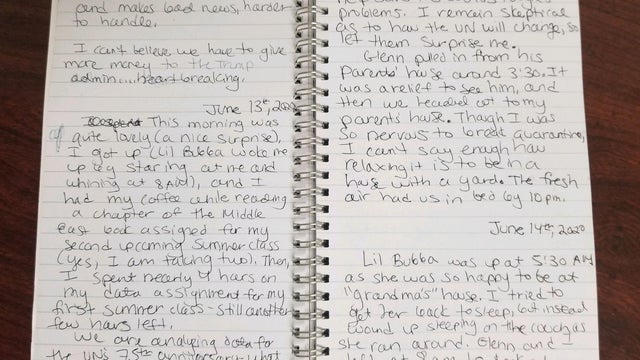 and makes bad news, harder
to handle.
I can't believe we have to give
more money to the Trump
admin....heartbreaking.
June 13th, 2020
This morning was
quite lovely (a nice surprise).
I got up (Lil Bubba woke me
up by staring at me and
whining at 8AM), and I
had my coffee while reading
a chapter of the Middle
East book assigned for my
second upcoming Summer class
(yes, I am taking two). Then,
I spent nearly 4 hours on
my data assignment for my
first summer class - still another
few hours left.
We are analyzing data for
the UN's 75th anniversary what
problems. I remain skeptical
as to how the UN will change, so
let them surprise me.
Glenn pulled in from his
parents' house around 3:30. It
was a relief to see him, and
then we headed out to my
parents house. Though I was
so nervous to break quarantine,
I can't say enough how
relaxing it is to be in a
house with a yard. The fresh
air had us in bed by 10pm.
June 14th, 2020
Lil Bubba was up at 5:30 AM
as she was so happy to be at
"grandma's" house. I tried to
get her back to sleep, but instead
wound up sleeping on the couch as
she ran around. Glenn and I